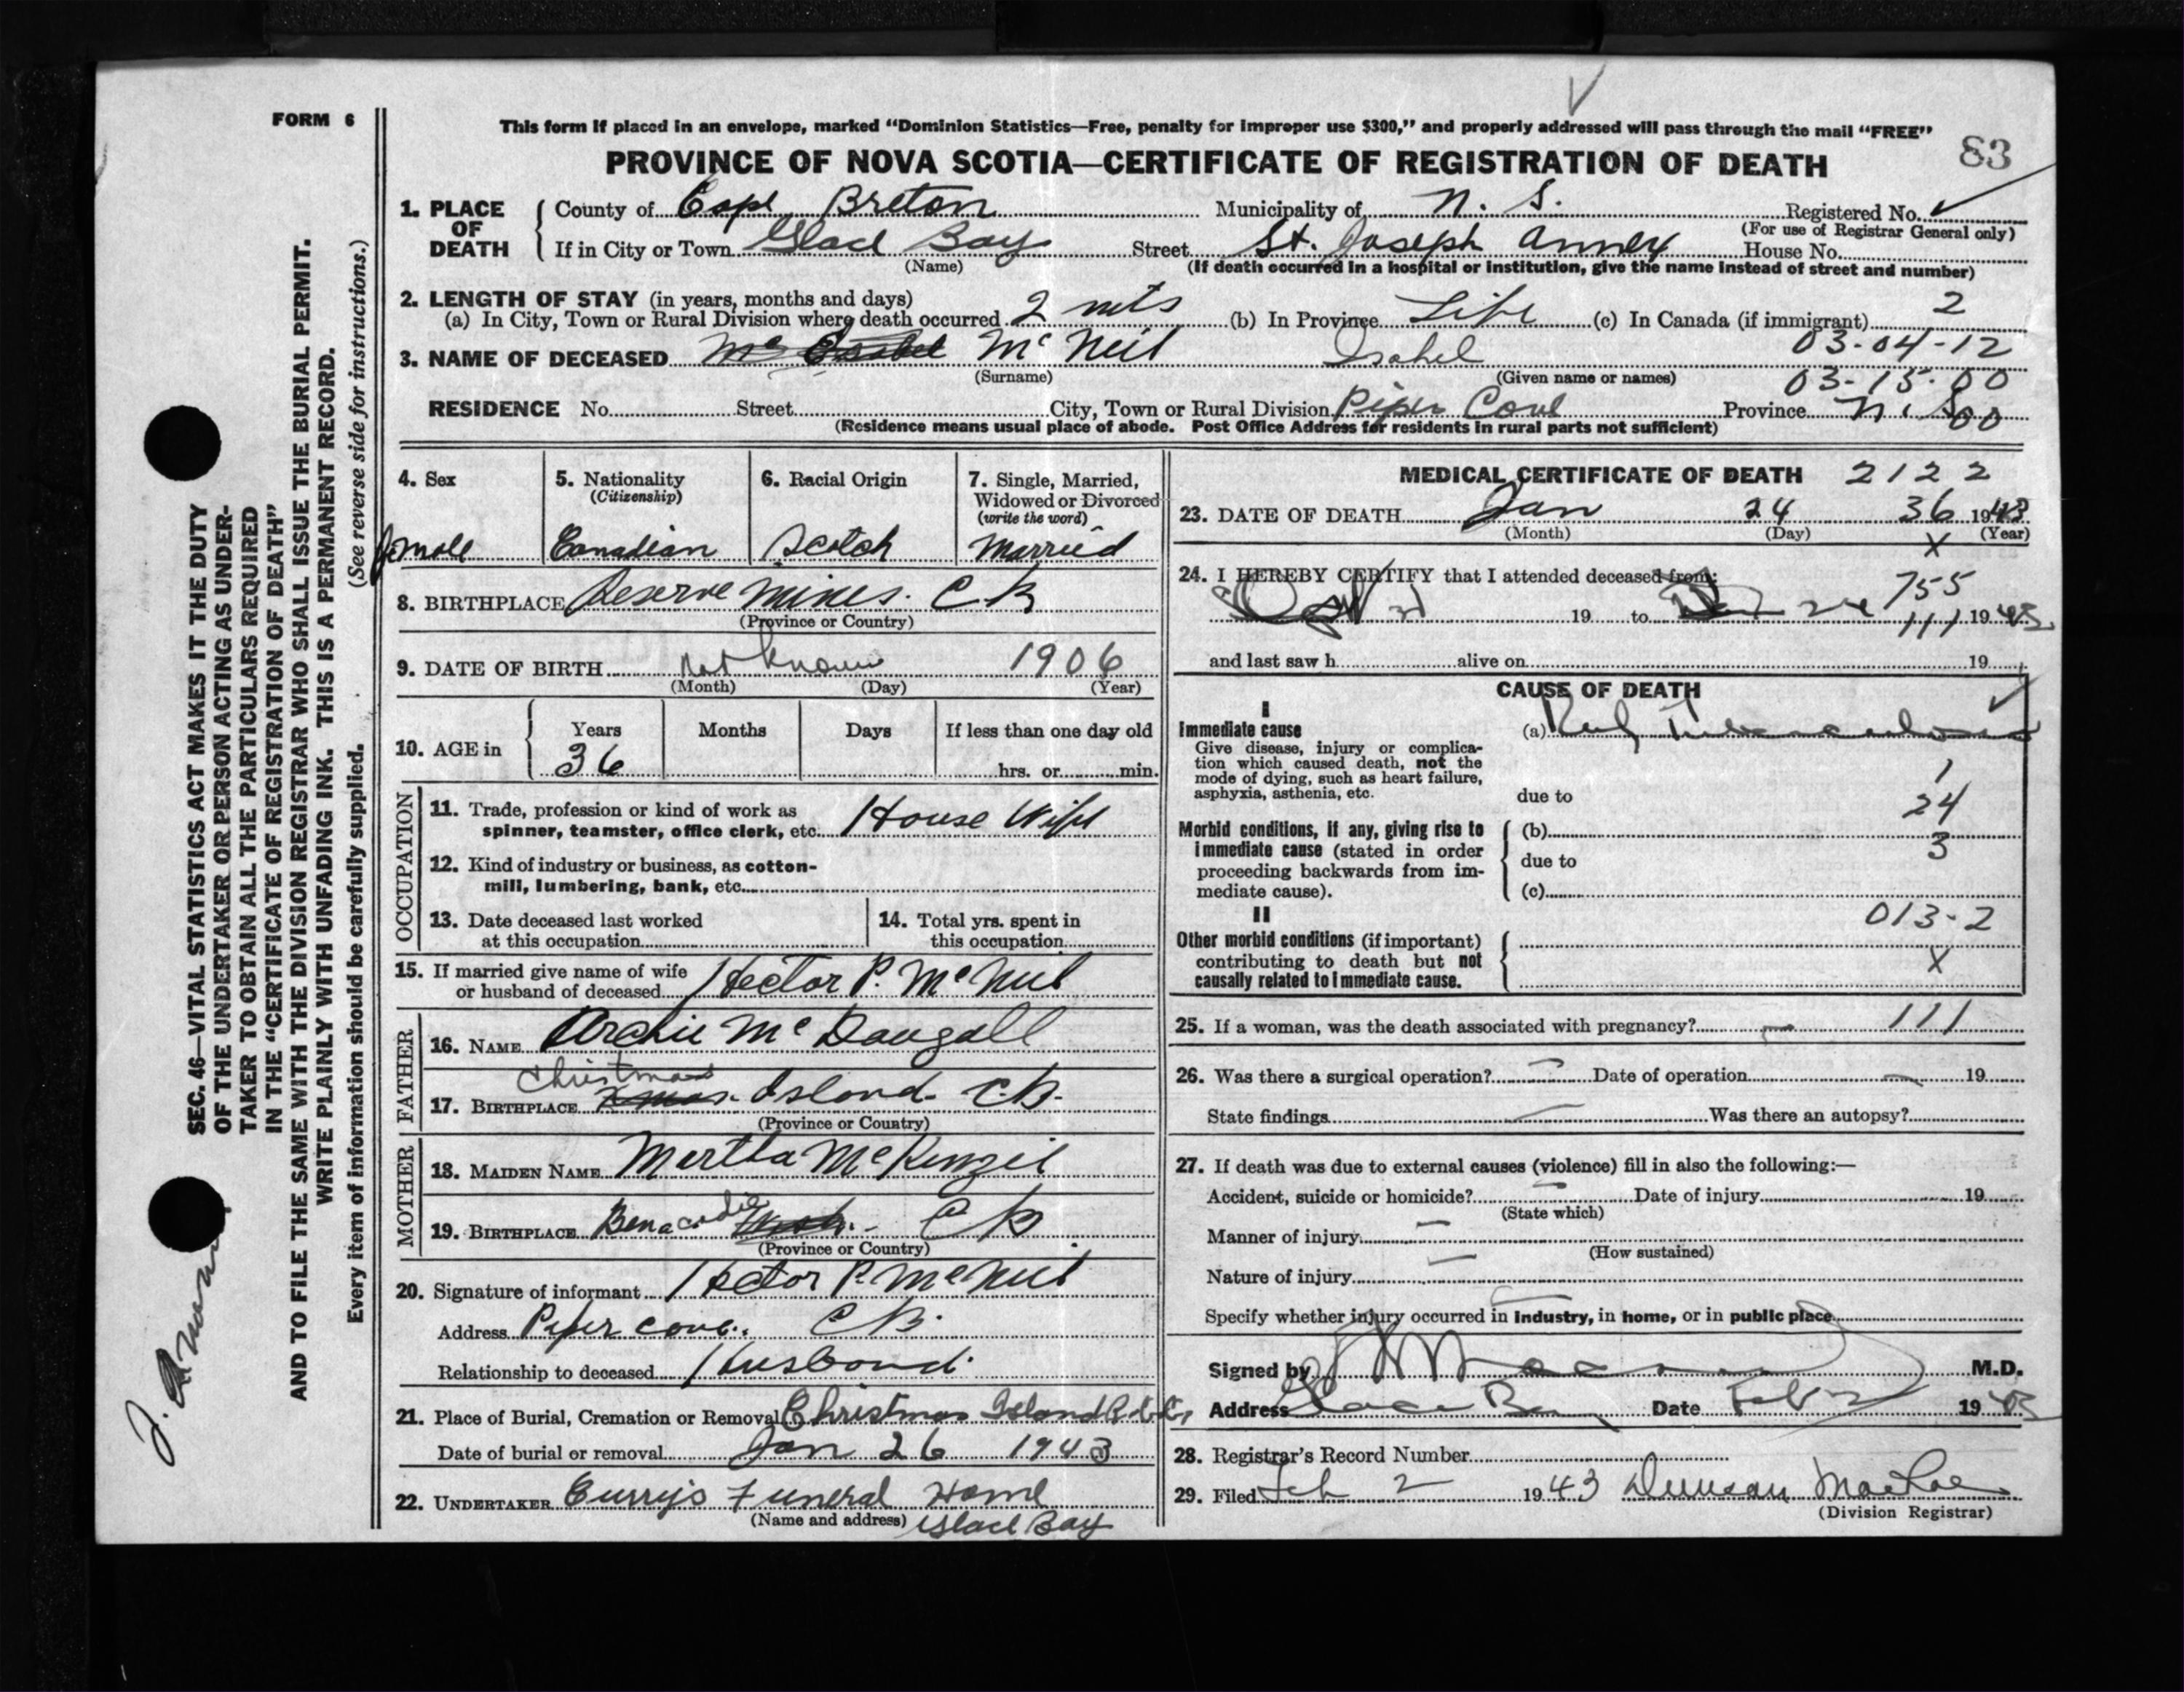 FORM 6
This form if placed in an envelope, marked "Dominion Statistics—Free, penalty for improper use $300," and properly addressed will pass through the mail "FREE"
PROVINCE OF NOVA SCOTIA—CERTIFICATE OF REGISTRATION OF DEATH
83
1. PLACE OF DEATH
County of Cape Breton Municipality of N. S. Registered No.
(For use of Registrar General only)
If in City or Town Glace Bay Street St. Joseph Annex House No.
(Name)
(If death occurred in a hospital or institution, give the name instead of street and number)
2. LENGTH OF STAY (in years, months and days)
(a) In City, Town or Rural Division where death occurred 2 mts (b) In Province Life (c) In Canada (if immigrant) 2
03-04-12
3. NAME OF DECEASED Mc Neil Isabel
(Surname) (Given name or names)
03-15-00
RESIDENCE No. Street City, Town or Rural Division Piper Cove Province N. S. 00
(Residence means usual place of abode. Post Office Address for residents in rural parts not sufficient)
4. Sex
female
5. Nationality
(Citizenship)
Canadian
6. Racial Origin
Scotch
7. Single, Married,
Widowed or Divorced
(write the word)
Married
8. BIRTHPLACE Reserve Mines. C.B
(Province or Country)
9. DATE OF BIRTH Not Known 1906
(Month) (Day) (Year)
10. AGE in
Years Months Days If less than one day old
36 hrs. or min.
OCCUPATION
11. Trade, profession or kind of work as
spinner, teamster, office clerk, etc. House Wife
12. Kind of industry or business, as cotton-
mill, lumbering, bank, etc.
13. Date deceased last worked
at this occupation
14. Total yrs. spent in
this occupation
15. If married give name of wife
or husband of deceased Hector P. McNeil
FATHER
16. NAME Archie McDougall
Christmas
17. BIRTHPLACE Xmas. Island. C.B.
(Province or Country)
MOTHER
18. MAIDEN NAME Martha McKenzie
19. BIRTHPLACE Benacadie C B
(Province or Country)
20. Signature of informant Hector P. McNeil
Address Piper Cove. C B.
Relationship to deceased Husband.
21. Place of Burial, Cremation or Removal Christmas Island
Date of burial or removal Jan 26 1943
22. UNDERTAKER Curry's Funeral Home
(Name and address) Glace Bay
MEDICAL CERTIFICATE OF DEATH 2122
23. DATE OF DEATH Jan 24 36 1943
(Month) (Day) (Year)
X
24. I HEREBY CERTIFY that I attended deceased from:
755
19 to 24 111 1943
and last saw h alive on 19
CAUSE OF DEATH
I
Immediate cause
Give disease, injury or complica-
tion which caused death, not the
mode of dying, such as heart failure,
asphyxia, asthenia, etc.
(a) Tuberculosis
1
due to
24
Morbid conditions, if any, giving rise to
immediate cause (stated in order
proceeding backwards from im-
mediate cause).
(b)
3
due to
(c)
II
013-2
Other morbid conditions (if important)
contributing to death but not
causally related to immediate cause.
X
25. If a woman, was the death associated with pregnancy? 111
26. Was there a surgical operation? Date of operation 19
State findings Was there an autopsy?
27. If death was due to external causes (violence) fill in also the following:—
Accident, suicide or homicide? Date of injury 19
(State which)
Manner of injury
(How sustained)
Nature of injury
Specify whether injury occurred in industry, in home, or in public place
Signed by M.D.
Address Glace Bay Date Feb 2 1943
28. Registrar's Record Number
29. Filed Feb 2 1943 Duncan MacRae
(Division Registrar)
SEC. 46—VITAL STATISTICS ACT MAKES IT THE DUTY
OF THE UNDERTAKER OR PERSON ACTING AS UNDER-
TAKER TO OBTAIN ALL THE PARTICULARS REQUIRED
IN THE "CERTIFICATE OF REGISTRATION OF DEATH"
AND TO FILE THE SAME WITH THE DIVISION REGISTRAR WHO SHALL ISSUE THE BURIAL PERMIT.
WRITE PLAINLY WITH UNFADING INK. THIS IS A PERMANENT RECORD.
Every item of information should be carefully supplied. (See reverse side for instructions.)